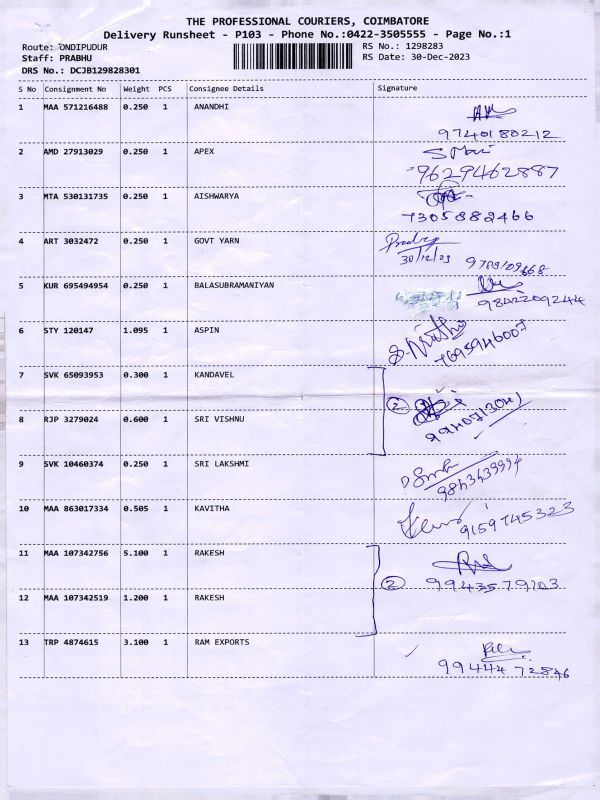 THE PROFESSIONAL COURIERS, COIMBATORE
Delivery Runsheet - P103 - Phone No.:0422-3505555 - Page No.:1
Route: ONDIPUDUR RS No.: 1298283
Staff: PRABHU RS Date: 30-Dec-2023
DRS No.: DCJB129828301
S No Consignment No Weight PCS Consignee Details Signature
1 MAA 571216488 0.250 1 ANANDHI
9740180212
2 AMD 27913029 0.250 1 APEX
9629462887
3 MTA 530131735 0.250 1 AISHWARYA
7305882466
4 ART 3032472 0.250 1 GOVT YARN
30/12/23
5 KUR 695494954 0.250 1 BALASUBRAMANIYAN
9842209244
6 STY 120147 1.095 1 ASPIN
7695946007
7 SVK 65093953 0.300 1 KANDAVEL
2
8 RJP 3279024 0.600 1 SRI VISHNU
9 SVK 10460374 0.250 1 SRI LAKSHMI
10 MAA 863017334 0.505 1 KAVITHA
9159745323
11 MAA 107342756 5.100 1 RAKESH
2 9943579103
12 MAA 107342519 1.200 1 RAKESH
13 TRP 4874615 3.100 1 RAM EXPORTS
9944472846